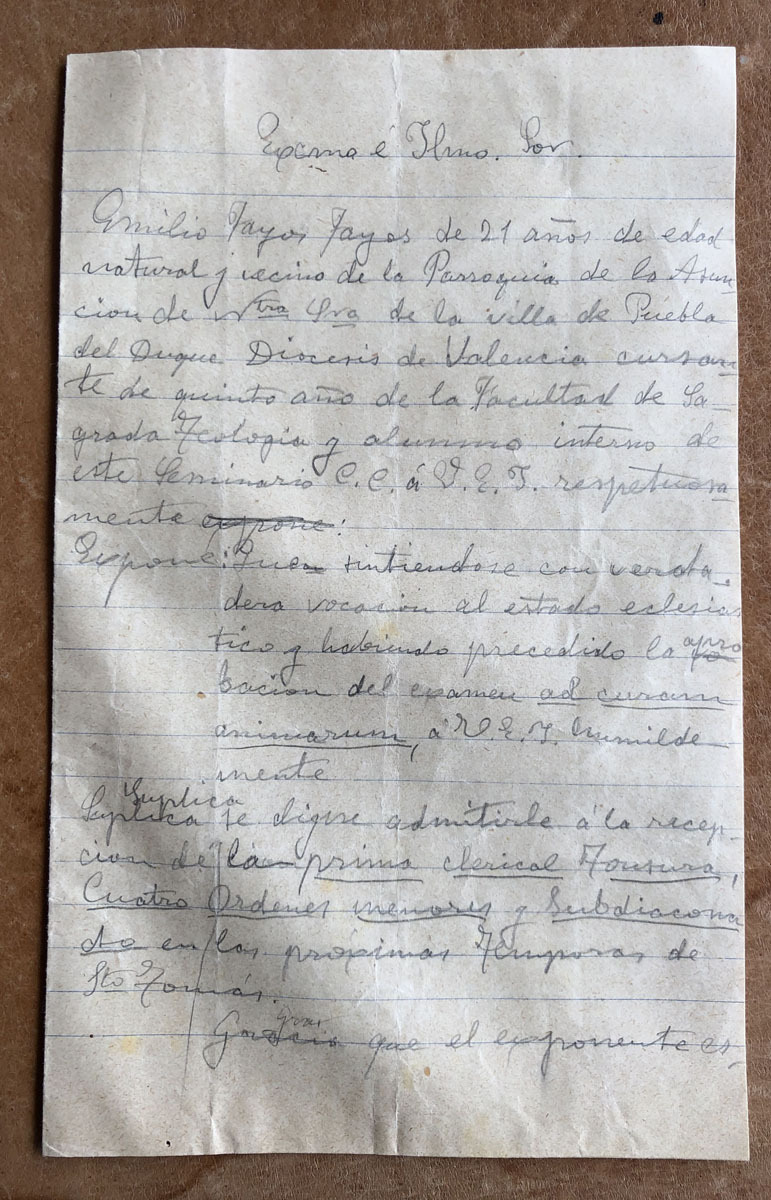 Excmo é Ilmo. Sor.
Emilio Tayos Tayos de 21 años de edad
natural y vecino de la Parroquia de la Asun
cion de Ntra Sra de la villa de Puebla
del Duque Diocesis de Valencia cursan
te de quinto año de la Facultad de Sa-
grada Teologia y alumno interno de
este Seminario C. C. á V. E. I. respetuosa
mente expone:
Expone: Que sintiendose con verda-
dera vocación al estado eclesias
tico y habiendo precedido la apro
bacion del examen ad curam
animarum, á V. E. I. humilde-
mente
Suplica
Suplica se digne admitirle á la recep-
cion de la prima clerical Tonsura,
Cuatro Ordenes menores y Subdiacona
do en las próximas Temporas de
Sto Tomás.
Gracia que el exponente es-